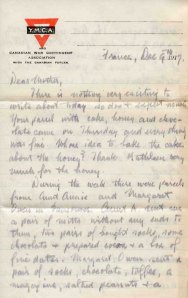 Y.M.C.A.
CANADIAN WAR CONTINGENT
ASSOCIATION
WITH THE CANADIAN FORCES
France, Dec 9th 1917
Dear Mother,
There is nothing very exciting to
write about today so don't expect
Your parcel with cake, honey and choco-
late came on Thursday and everything
was fine. Whose idea to bake the cake
about the honey? Thank Kathleen very
much for the honey.
During the week there were parcels
from Aunt Annie and Margaret
Owen in Aunt sent me
a pair of mitts without any ends to
them, two pairs of bought socks, some
chocolate & prepared cocoa & a box
of fine dates. Margaret Owen sent a
pair of socks, chocolate, toffee, a
magazine, salted peanuts & a